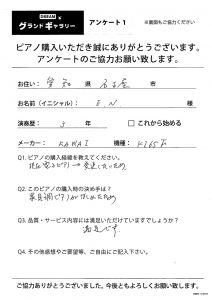 DREAM
グランドギャラリー アンケート1 ※裏面もご協力ください
ピアノ購入いただき誠にありがとうございます。
アンケートのご協力お願い致します。
お住い： 愛知 県 名古屋 市
お名前（イニシャル）： E N 様
演奏歴： 3 年 □ これから始める
メーカー： KAWAI 機種：
Q1. ピアノの購入経緯を教えてください。
Q2. このピアノの購入時の決め手は？
Q3. 品質・サービス内容には満足いただけていますでしょうか？
Q4. その他感想やご要望等、ご自由にご記入下さい。
ご協力ありがとうございました。今後ともよろしくお願い致します。